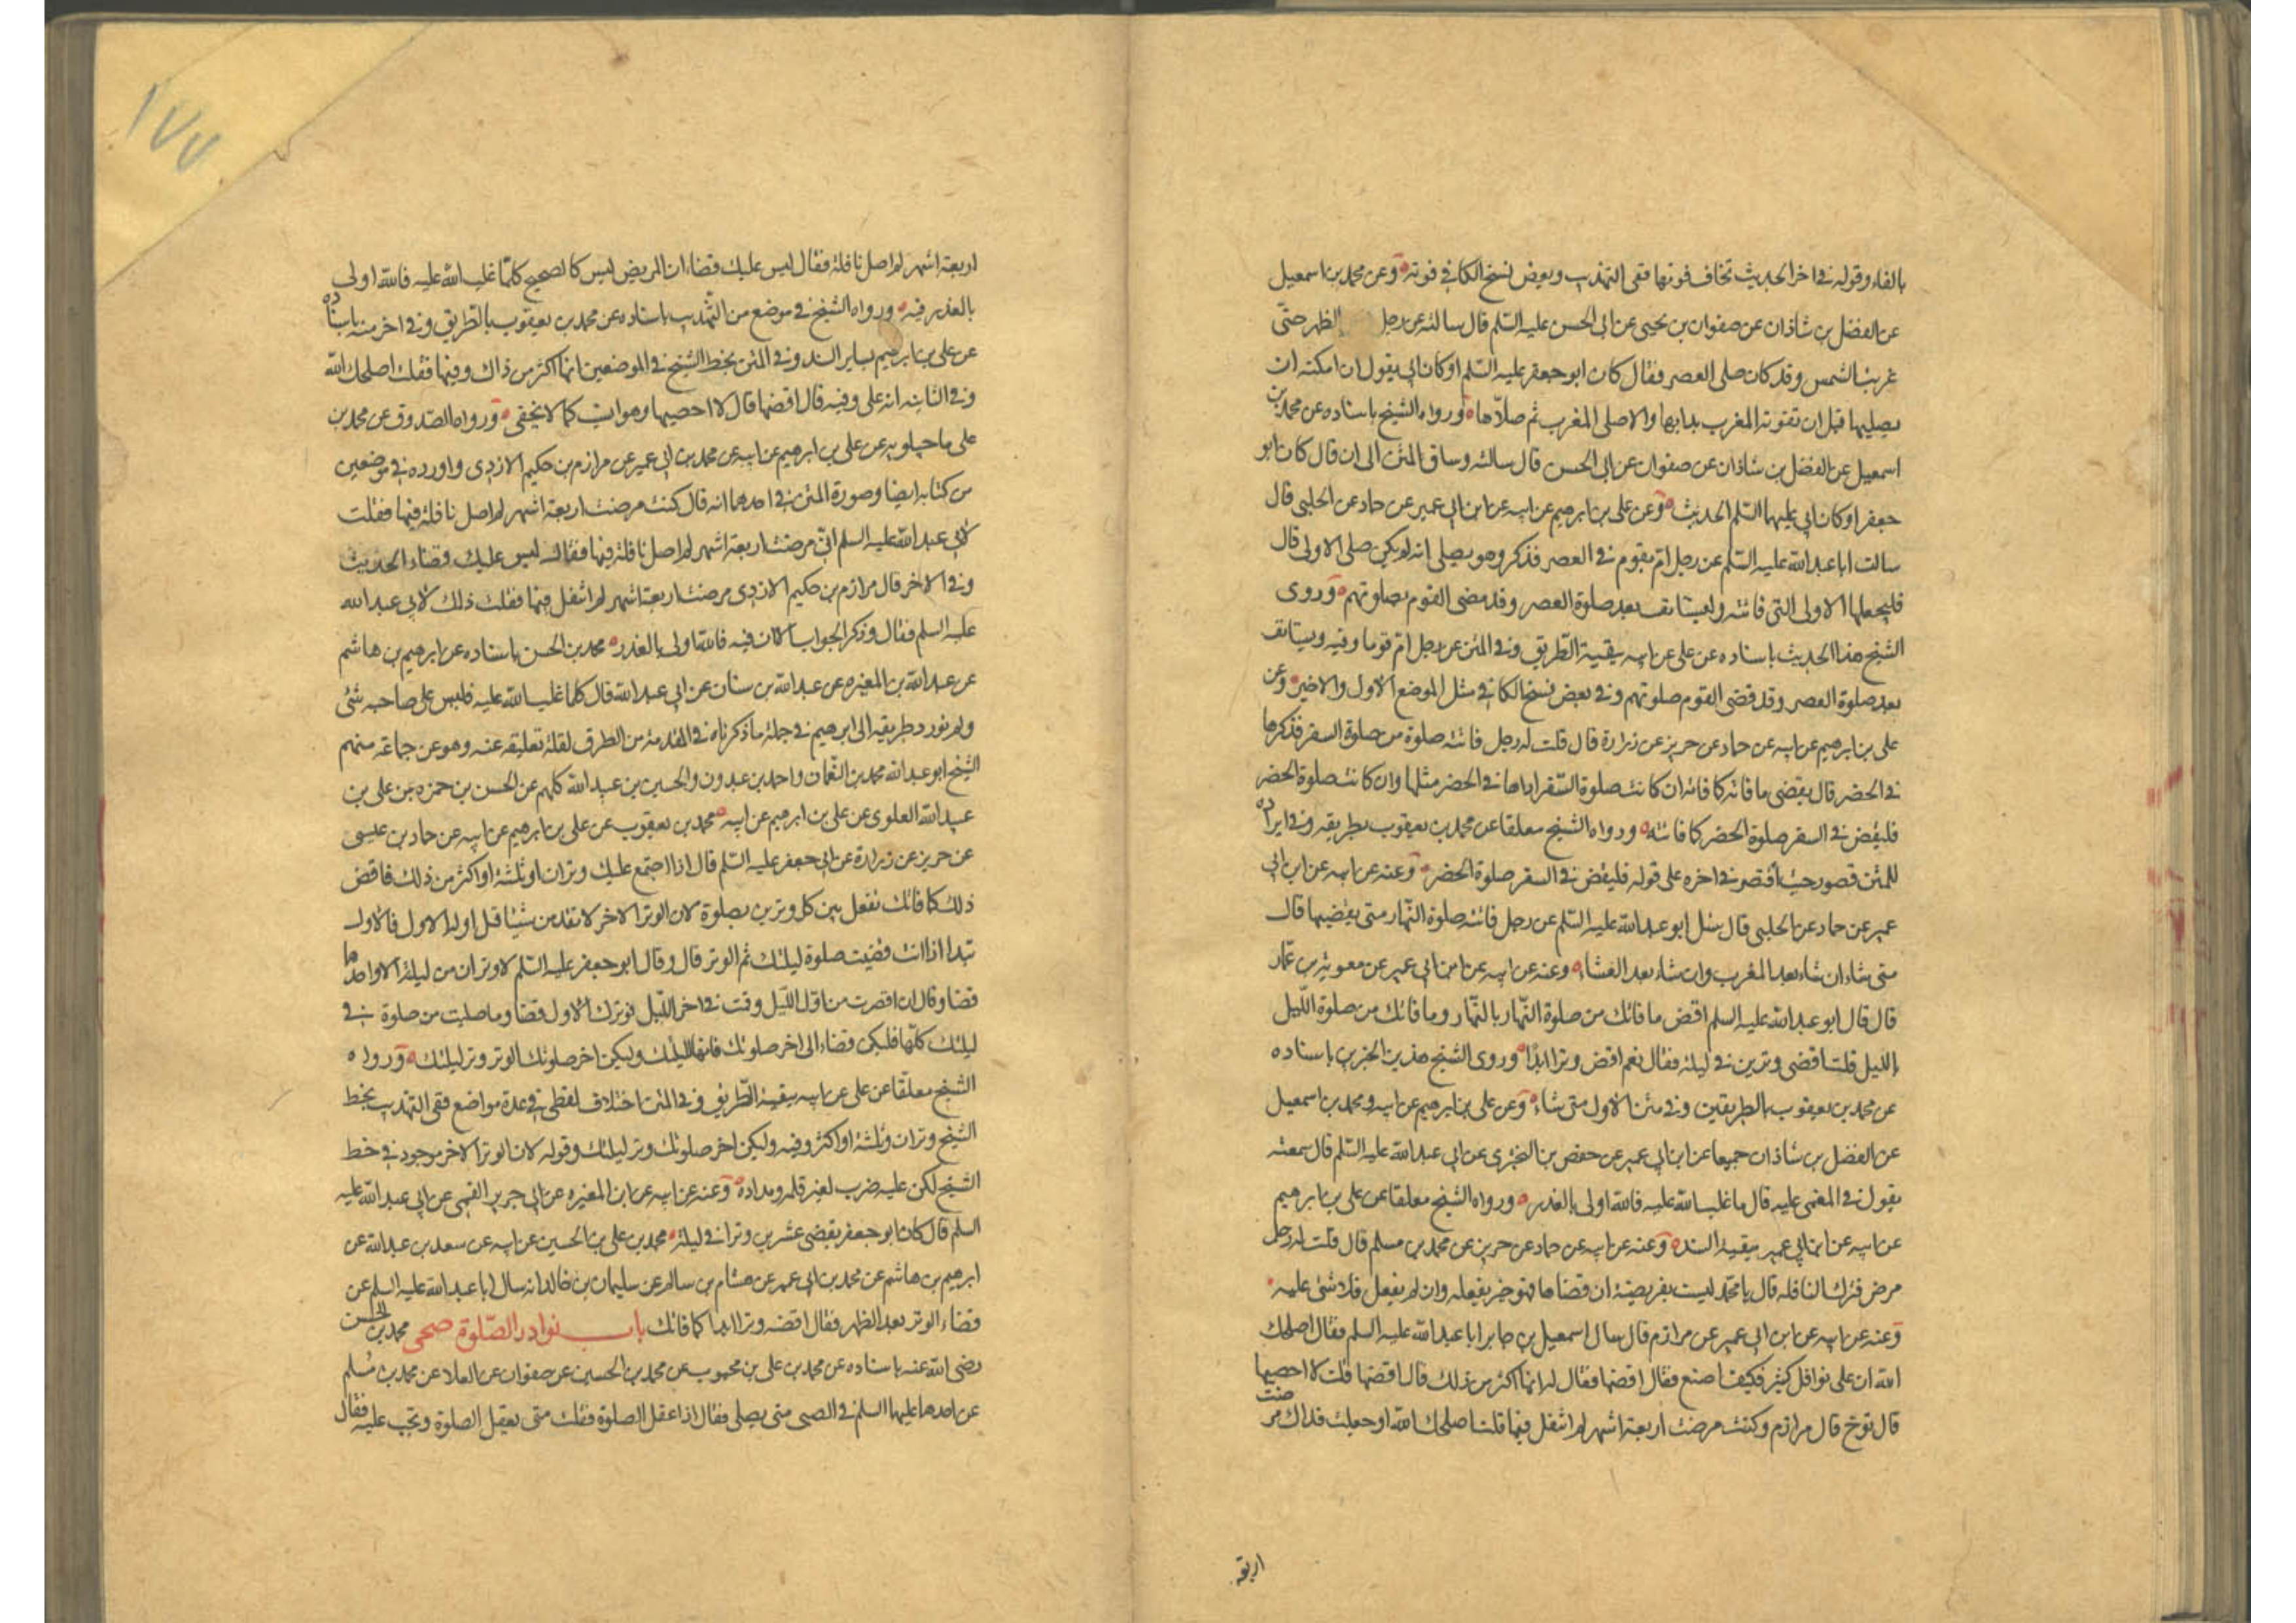 بالفاء وقوله في اخر الحديث تخاف فوتها ففي التهذيب وبعض نسخ الكافي فوته وعن محمد بن اسمعيل
عن الفضل بن شاذان عن صفوان بن يحيى عن ابي الحسن عليه السلم قال سالته عن رجل الظهر حتى
غربت الشمس وقد كان صلى العصر فقال كان ابو جعفر عليه السلم او كان ابي يقول ان امكنه ان
يصليها قبل ان تفوته المغرب بدا بها والا صلى المغرب ثم صلاها ورواه الشيخ باسناده عن محمد بن
اسمعيل عن الفضل بن شاذان عن صفوان عن ابي الحسن قال سالته وساق المتن الى ان قال كان ابو
جعفر او كان ابي عليهما السلم الحديث وعن علي بن ابرهيم عن ابيه عن ابن ابي عمير عن حماد عن الحلبي قال
سالت ابا عبد الله عليه السلم عن رجل ام بقوم في العصر فذكر وهو يصلي انه لم يكن صلى الاولى قال
فليجعلها الاولى التي فاتته وليستانف بعد صلوة العصر وقد مضى القوم بصلوتهم وروى
الشيخ هذا الحديث باسناده عن علي عن ابيه ببقية الطريق وفي المتن عن رجل ام قوما وفيه ويستانف
بعد صلوة العصر وقد قضى القوم صلوتهم وفي بعض نسخ الكافي مثل الموضع الاول والاخير وعن
علي بن ابرهيم عن ابيه عن حماد عن حريز عن زرارة قال قلت له رجل فاتته صلوة من صلوة السفر فذكرها
في الحضر قال يقضي ما فاته كما فاته ان كانت صلوة السفر اداها في الحضر مثلها وان كانت صلوة الحضر
فليقض في السفر صلوة الحضر كما فاتته ورواه الشيخ معلقا عن محمد بن يعقوب بطريقه وفي ايراده
للمتن قصور حيث اقتصر في اخره على قوله فليقض في السفر صلوة الحضر وعنه عن ابيه عن ابن ابي
عمير عن حماد عن الحلبي قال سئل ابو عبد الله عليه السلم عن رجل فاتته صلوة النهار متى يقضيها قال
متى شاء ان شاء بعد المغرب وان شاء بعد العشاء وعنه عن ابيه عن ابن ابي عمير عن معوية بن عمار
قال قال ابو عبد الله عليه السلم اقض ما فاتك من صلوة النهار بالنهار وما فاتك من صلوة الليل
بالليل قلت اقضي وترين في ليلة فقال نعم اقض وترا ابدا وروى الشيخ هذين الخبرين باسناده
عن محمد بن يعقوب بالطريقين وفي متن الاول متى شاء وعن علي بن ابرهيم عن ابيه ومحمد بن اسمعيل
عن الفضل بن شاذان جميعا عن ابن ابي عمير عن حفص بن البختري عن ابي عبد الله عليه السلم قال سمعته
يقول في المغمى عليه قال ما غلب الله عليه فالله اولى بالعذر ورواه الشيخ معلقا عن علي بن ابرهيم
عن ابيه عن ابن ابي عمير ببقية السند وعنه عن ابيه عن حماد عن حريز عن محمد بن مسلم قال قلت له رجل
مرض فترك النافلة قال يا محمد ليست بفريضة ان قضاها فهو خير يفعله وان لم يفعل فلا شئ عليه
وعنه عن ابيه عن ابن ابي عمير عن مرازم قال سال اسمعيل بن جابر ابا عبد الله عليه السلم فقال اصلحك
الله ان علي نوافل كثير فكيف اصنع فقال اقضها فقال له انها اكثر من ذلك قال اقضها قلت لا احصيها
قال توخ قال مرازم وكنت مرضت اربعة اشهر لم اتنفل فيها قلت اصلحك الله او جعلت فداك مرضت
اربعة
١٧٧
اربعة اشهر لم اصل نافلة فقال ليس عليك قضاء ان المريض ليس كالصحيح كلما غلب الله عليه فالله اولى
بالعذر فيه ورواه الشيخ في موضع من التهذيب باسناده عن محمد بن يعقوب بالطريق وفي اخر منه باسناده
عن علي بن ابرهيم بساير السند وفي المتن بخط الشيخ في الموضعين انها اكثر من ذاك وفيها فقلت اصلحك الله
وفي الثانيه انه علي وفيه قال اقضها قال لا احصيها وهو كما لا يخفى ورواه الصدوق عن محمد بن
علي ماجيلويه عن علي بن ابرهيم عن ابيه عن محمد بن ابي عمير عن مرازم بن حكيم الازدي واورده في موضعين
من كتابه ايضا وصورة المتن في احدهما انه قال كنت مرضت اربعة اشهر لم اصل نافلة فيها فقلت
لابي عبد الله عليه السلم اني مرضت اربعة اشهر لم اصل نافلة فيها فقال ليس عليك قضاء الحديث
وفي الاخر قال مرازم بن حكيم الازدي مرضت اربعة اشهر لم اتنفل فيها فقلت ذلك لابي عبد الله
عليه السلم فقال وذكر الجواب الا ان فيه فالله اولى بالعذر محمد بن الحسن باسناده عن ابرهيم بن هاشم
عن عبد الله بن المغيره عن عبد الله بن سنان عن ابي عبد الله قال كلما غلب الله عليه فليس على صاحبه شئ
ولم نورد طريقه الى ابرهيم في جملة ما ذكرناه في المقدمة من الطرق لقلة تعليقه عنه وهو عن جماعة منهم
الشيخ ابو عبد الله محمد بن النعمان واحمد بن عبدون والحسين بن عبيد الله كلهم عن الحسن بن حمزه بن علي بن
عبيد الله العلوي عن علي بن ابرهيم عن ابيه محمد بن يعقوب عن علي بن ابرهيم عن ابيه عن حماد بن عيسى
عن حريز عن زرارة عن ابي جعفر عليه السلم قال اذا اجتمع عليك وتران او ثلثة او اكثر من ذلك فاقض
ذلك كما فاتك تفصل بين كل وترين بصلوة لان الوتر الاخر لا تقدمن شيئا قبل اوله الاول فالاول
تبدا اذا انت قضيت صلوة ليلتك ثم الوتر قال وقال ابو جعفر عليه السلم لا وتران من ليلة الا واحدهما
قضاء وقال ان اوترت من اول الليل وقمت في اخر الليل فوترك الاول قضاء وما صليت من صلوة في
ليلتك كلها فليكن قضاء الى اخر صلوتك فانها لليلتك وليكن اخر صلوتك الوتر وتر ليلتك ورواه
الشيخ معلقا عن علي عن ابيه ببقية الطريق وفي المتن اختلاف لفظي في عدة مواضع ففي التهذيب بخط
الشيخ وتران وثلثة او اكثر وفيه وليكن اخر صلوتك وتر ليلتك وقوله لان الوتر الاخر موجود في خط
الشيخ لكن عليه ضرب لغير قلمه ومداده وعنه عن ابيه عن ابن المغيره عن ابي جرير القمي عن ابي عبد الله عليه
السلم قال كان ابو جعفر يقضي عشرين وترا في ليلة محمد بن علي بن الحسين عن ابيه عن سعد بن عبد الله عن
ابرهيم بن هاشم عن محمد بن ابي عمير عن هشام بن سالم عن سليمان بن خالد انه سال ابا عبد الله عليه السلم عن
قضاء الوتر بعد الظهر فقال اقضه وترا ابدا كما فاتك باب نوادر الصلوة صحى محمد بن الحسن
رضى الله عنه باسناده عن محمد بن علي بن محبوب عن محمد بن الحسين عن صفوان عن العلا عن محمد بن مسلم
عن احدهما عليهما السلم في الصبي متى يصلي فقال اذا عقل الصلوة فقلت متى يعقل الصلوة وتجب عليه فقال